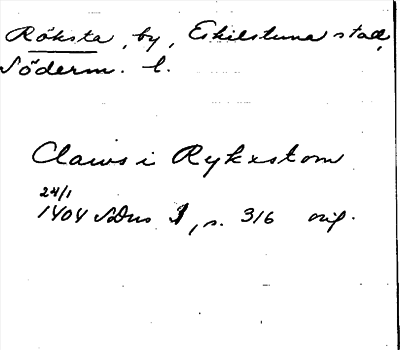 Röksta, by, Eskilstuna stad,
Söderm. l.
Claws i Rykxstom
24/1
1404 SDns 1, s. 316 orig.